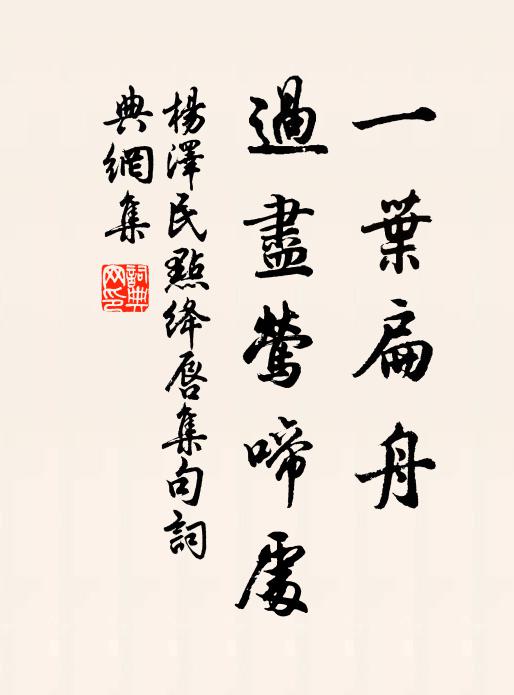 一葉扁舟
過盡鶯啼處
楊澤民點絳唇集句詞
典網集
詞典網印